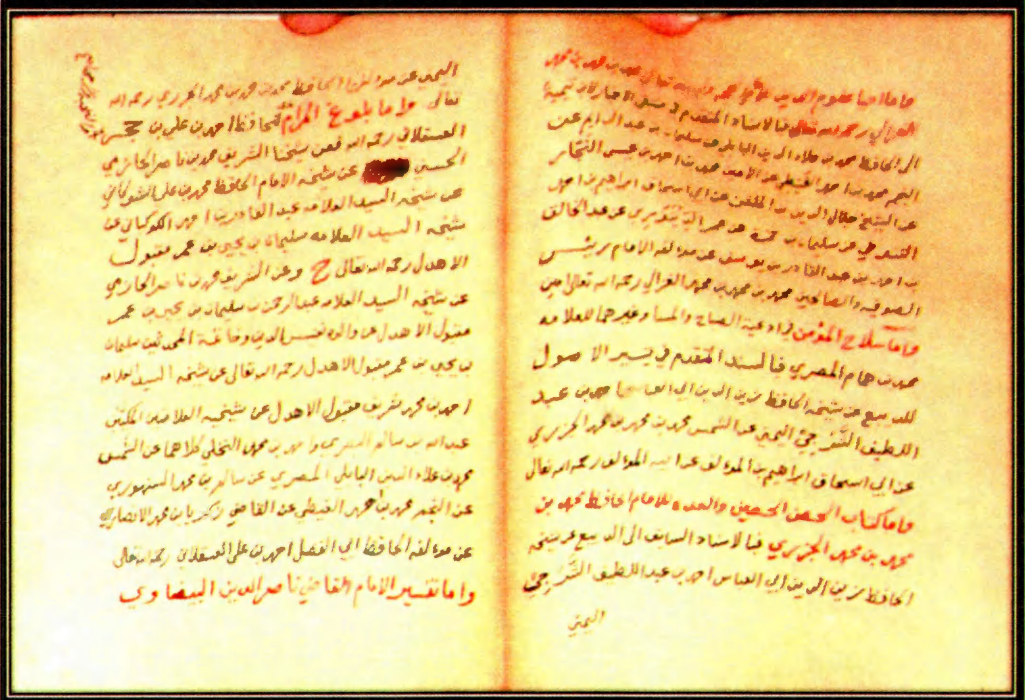 واما احيا علوم الدين للامام حجة الاسلام محمد بن محمد بن محمد
الغزالي رحمه الله تعالى فبالاسناد المتقدم في
الى الحافظ محمد بن علاء الدين البابلي عن سليمان بن عبد الدايم عن
النجم محمد بن احمد الغيطي عن الامين محمد بن احمد بن عيسى النجار
عن الشيخ جلال الدين بن الملقن عن ابي اسحاق ابراهيم بن احمد
التنوخي عن سليمان بن حمزه عن عمر الدينوري عن عبد الخالق
بن احمد بن عبد القادر بن يوسف عن مؤلفه الامام
الصوفيه والصالحين محمد بن محمد بن محمد الغزالي رحمه الله تعالى امين
واما سلاح المؤمن في ادعية الصباح والمسا وغيرهما للعلامه
محمد بن همام المصري فبالسند المتقدم في تيسير الاصول
للديبع عن شيخه الحافظ زين الدين ابي العباس احمد بن عبد
اللطيف الشرجي اليمني عن الشمس محمد بن محمد بن محمد الجزيري
عن ابي اسحاق ابراهيم بن المؤلف عن ابيه المؤلف رحمه الله تعالى
واما كتاب الحصن الحصين والعده للامام الحافظ محمد بن
محمد بن محمد الجزيري فبالاسناد السابق الى الديبع عن شيخه
الحافظ زين الدين ابي العباس احمد بن عبد اللطيف الشرجي
اليمني
اليمني عن مؤلفها الحافظ محمد بن محمد بن محمد الجزري رحمه الله
تعالى واما بلوغ المرام للحافظ احمد بن علي بن حجر
العسقلاني رحمه الله فعن شيخنا الشريف محمد بن ناصر الحازمي
الحسني عن شيخه الامام الحافظ محمد بن علي الشوكاني
عن شيخه السيد العلامه عبد القادر بن احمد الكوكباني عن
شيخه السيد العلامه سليمان بن يحيى بن عمر مقبول
الاهدل رحمه الله تعالى ح وعن الشريف محمد بن ناصر الحازمي
عن شيخه السيد العلامه عبد الرحمن بن سليمان بن يحيى بن عمر
مقبول الاهدل عن والده نفيس الدين وخاتمة المحدثين سليمان
بن يحيى بن عمر مقبول الاهدل رحمه الله تعالى عن شيخه السيد العلامه
احمد بن محمد شريف مقبول الاهدل عن شيخيه العلامتين المكيين
عبد الله بن سالم البصري واحمد بن محمد النخلي كلاهما عن الشمس
محمد بن علاء الدين البابلي المصري عن سالم بن محمد السنهوري
عن النجم محمد بن احمد الغيطي عن القاضي زكريا بن محمد الانصاري
عن مؤلفه الحافظ ابي الفضل احمد بن علي العسقلاني رحمه الله تعالى
واما تفسير الامام القاضي ناصر الدين البيضاوي